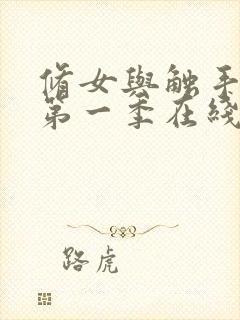 脩女與觸手
第一季在綫
路虎